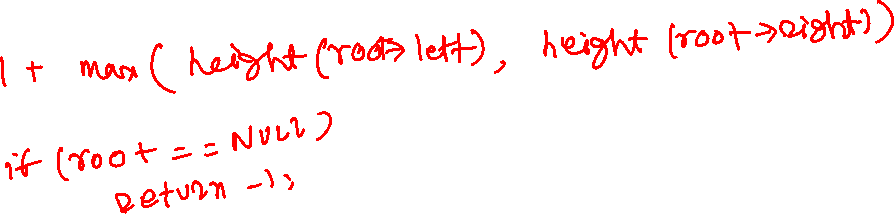 1 + max ( height (root->left), height (root->right))
if (root == NULL)
return -1;